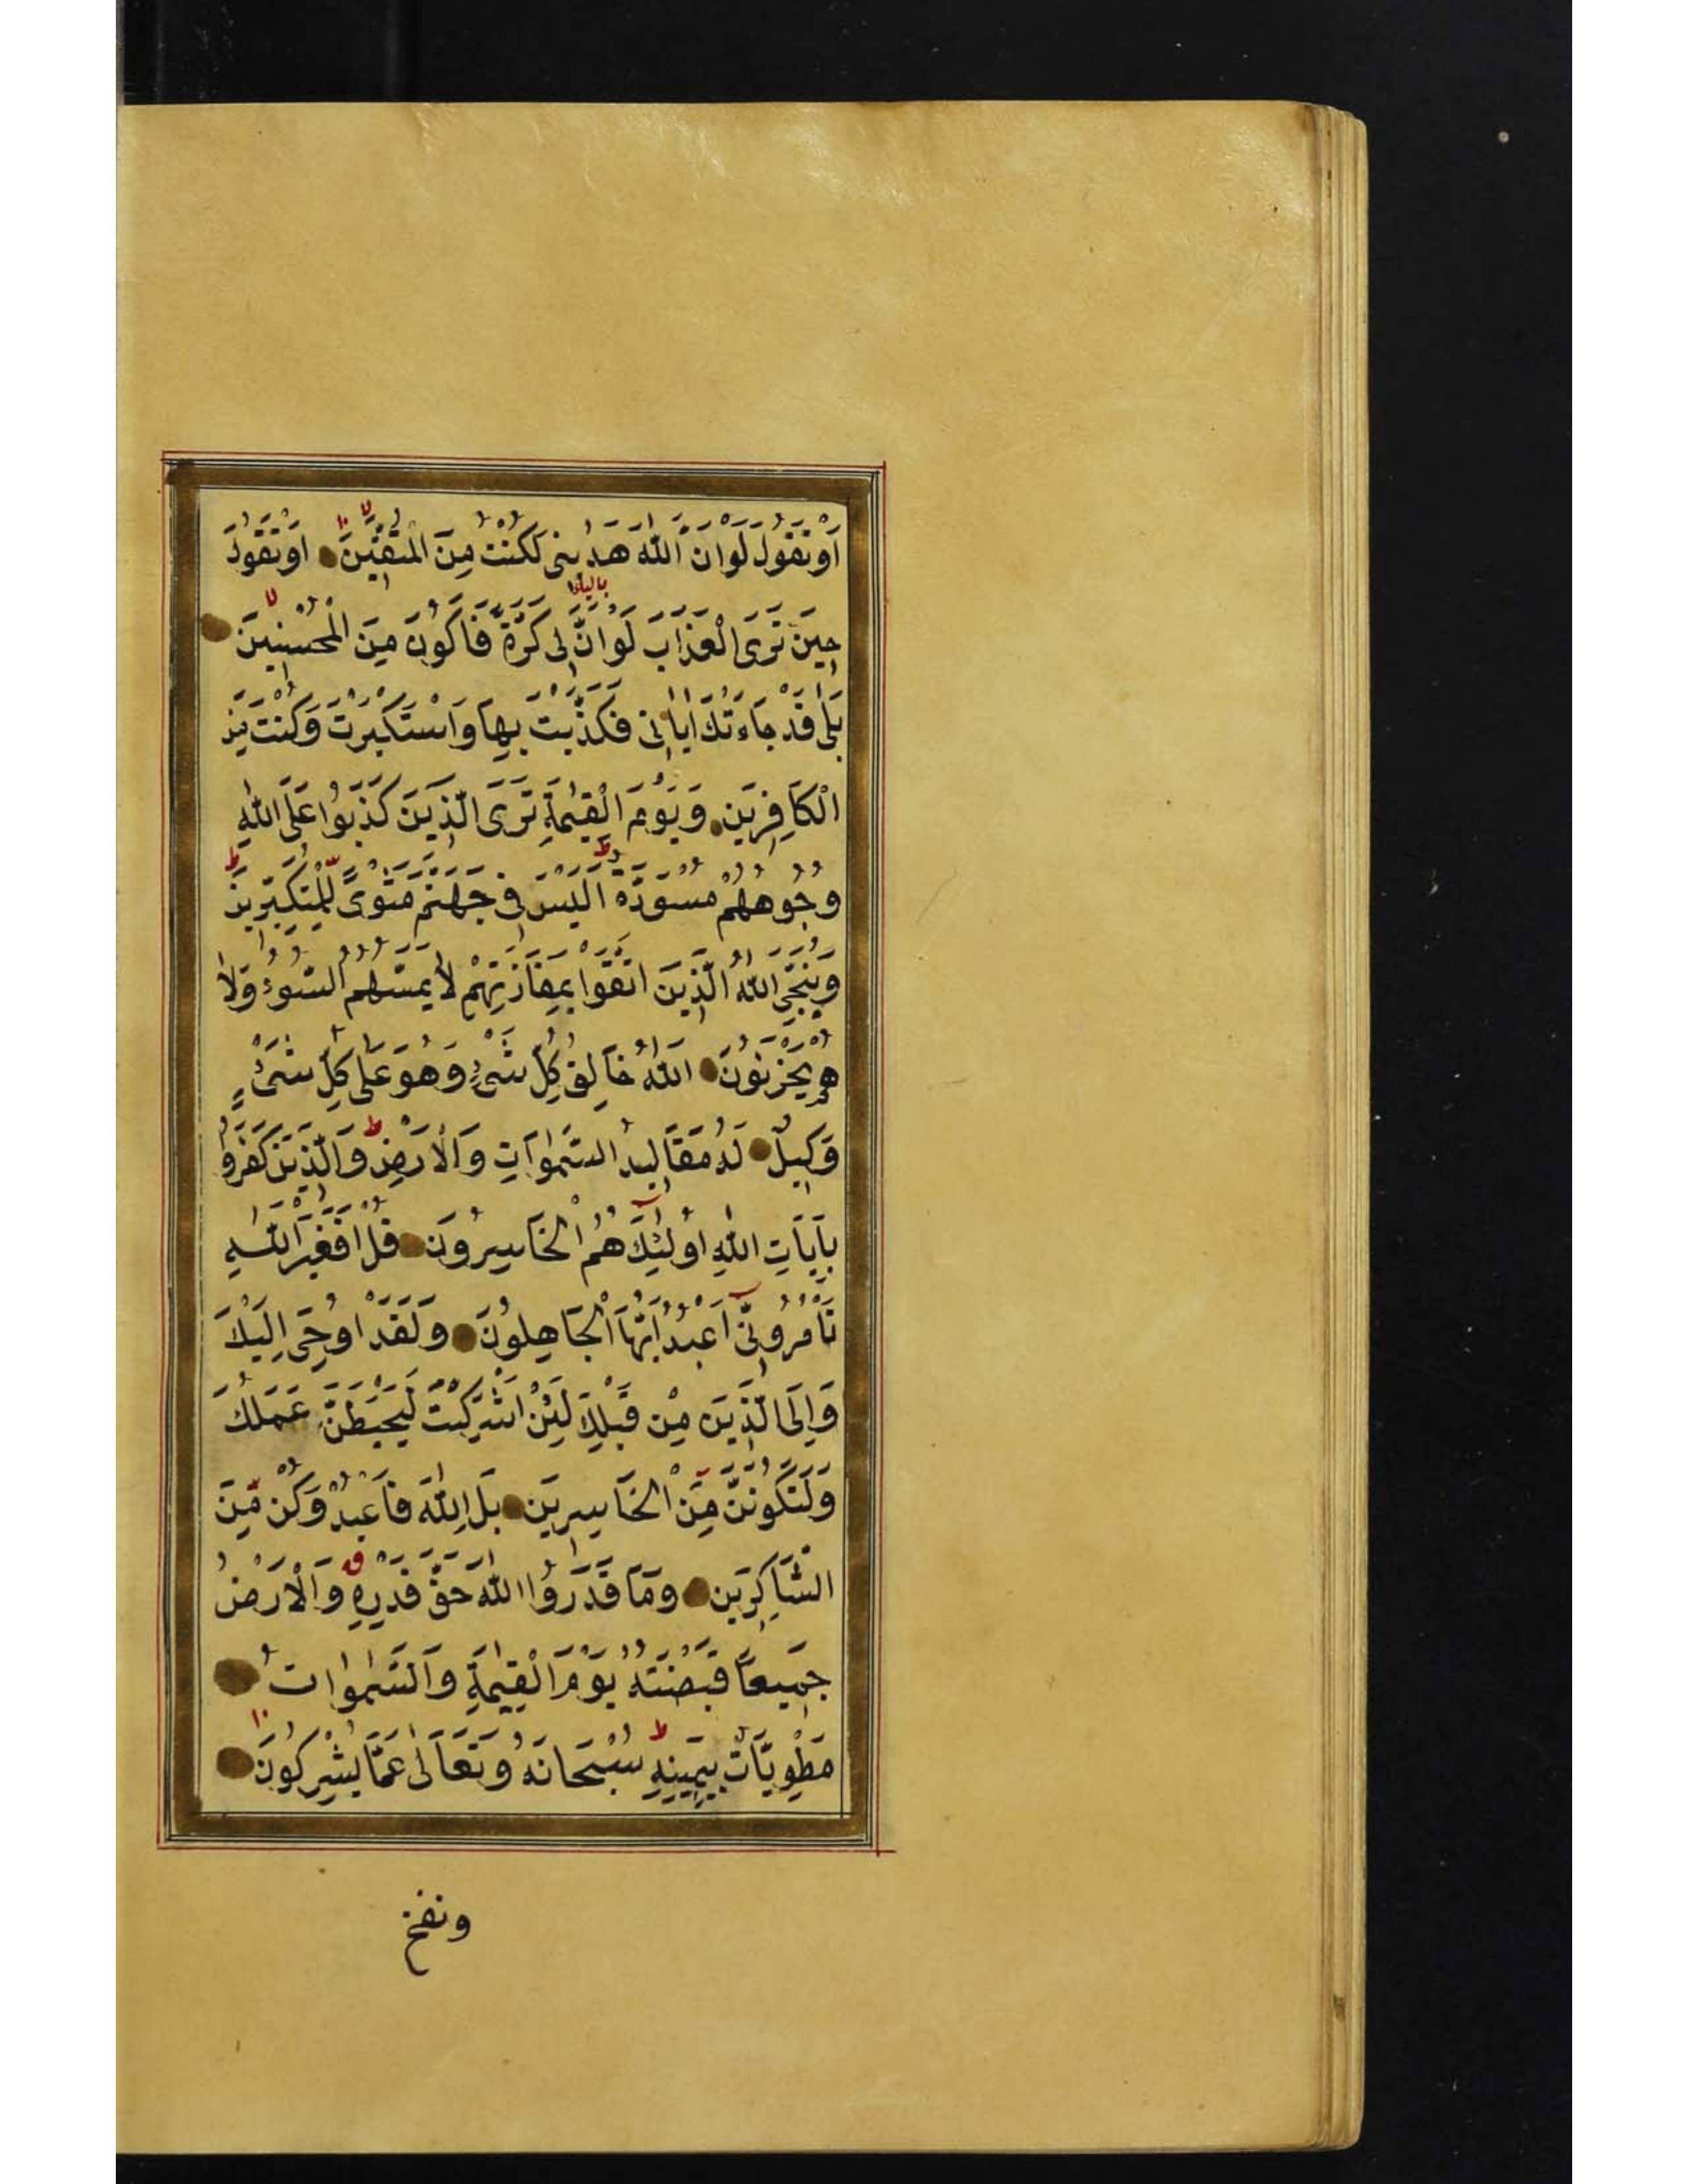 اَوْ تَقُولَ لَوْ اَنَّ اللّٰهَ هَدٰينى لَكُنْتُ مِنَ الْمُتَّقِينَ اَوْ تَقُولَ
حِينَ تَرَى الْعَذَابَ لَوْ اَنَّ لِى كَرَّةً فَاَكُونَ مِنَ الْمُحْسِنِينَ
بَلٰى قَدْ جَاءَتْكَ اٰيَاتِى فَكَذَّبْتَ بِهَا وَاسْتَكْبَرْتَ وَكُنْتَ مِنَ
الْكَافِرِينَ وَيَوْمَ الْقِيٰمَةِ تَرَى الَّذِينَ كَذَبُوا عَلَى اللّٰهِ
وُجُوهُهُمْ مُسْوَدَّةٌ اَلَيْسَ فِى جَهَنَّمَ مَثْوًى لِلْمُتَكَبِّرِينَ
وَيُنَجِّى اللّٰهُ الَّذِينَ اتَّقَوْا بِمَفَازَتِهِمْ لَا يَمَسُّهُمُ السُّوءُ وَلَا
هُمْ يَحْزَنُونَ اَللّٰهُ خَالِقُ كُلِّ شَىْءٍ وَهُوَ عَلٰى كُلِّ شَىْءٍ
وَكِيلٌ لَهُ مَقَالِيدُ السَّمٰوَاتِ وَالْاَرْضِ وَالَّذِينَ كَفَرُوا
بِاٰيَاتِ اللّٰهِ اُولٰئِكَ هُمُ الْخَاسِرُونَ قُلْ اَفَغَيْرَ اللّٰهِ
تَأْمُرُونِّى اَعْبُدُ اَيُّهَا الْجَاهِلُونَ وَلَقَدْ اُوحِىَ اِلَيْكَ
وَاِلَى الَّذِينَ مِنْ قَبْلِكَ لَئِنْ اَشْرَكْتَ لَيَحْبَطَنَّ عَمَلُكَ
وَلَتَكُونَنَّ مِنَ الْخَاسِرِينَ بَلِ اللّٰهَ فَاعْبُدْ وَكُنْ مِنَ
الشَّاكِرِينَ وَمَا قَدَرُوا اللّٰهَ حَقَّ قَدْرِهِ وَالْاَرْضُ
جَمِيعًا قَبْضَتُهُ يَوْمَ الْقِيٰمَةِ وَالسَّمٰوٰاتُ
مَطْوِيَّاتٌ بِيَمِينِهِ سُبْحَانَهُ وَتَعَالٰى عَمَّا يُشْرِكُونَ
ونفخ